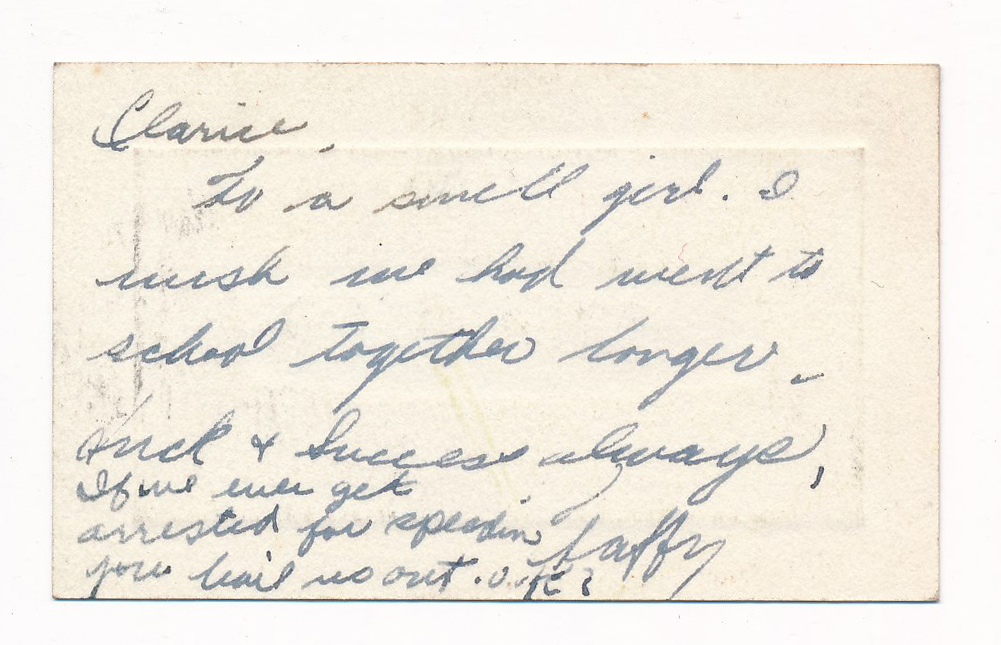 Clarice,
To a swell girl. I
wish we had went to
school together longer.
Luck & Success always,
If we ever get
arrested for speedin
you bail us out. O.K.?
Taffy